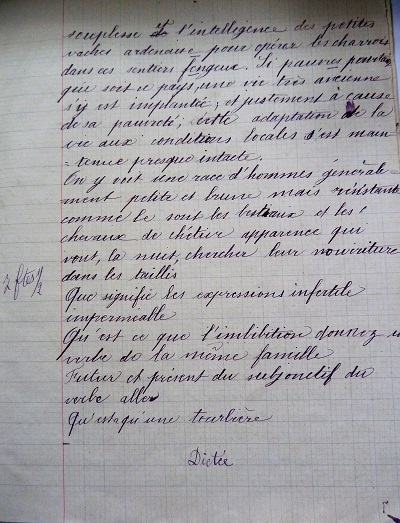 souplesse et l'intelligence des petites
vaches ardenaise pour opérer les charrois
dans ces sentiers fongeux. Si pauvres pourtant
que soit ce pays, une vie très ancienne
s'y est implantée; et justement à cause
de sa pauvreté; cette adaptation de la
vie aux conditions locales s'est main
-tenue presque intacte.
On y voit une race d'hommes générale-
ment petite et brune mais résistante
comme le sont les bestiaux et les
chevaux de chétive apparence qui
vont, la nuit, chercher leur nourriture
dans les taillis
2 ftes 1/2
Que signifie les expressions infertile
imperméable
Qu'est ce que l'imbibition donnez un
verbe de la même famille
Futur et présent du subjonctif du
verbe aller
Qu'est qu'une tourbière
Dictée